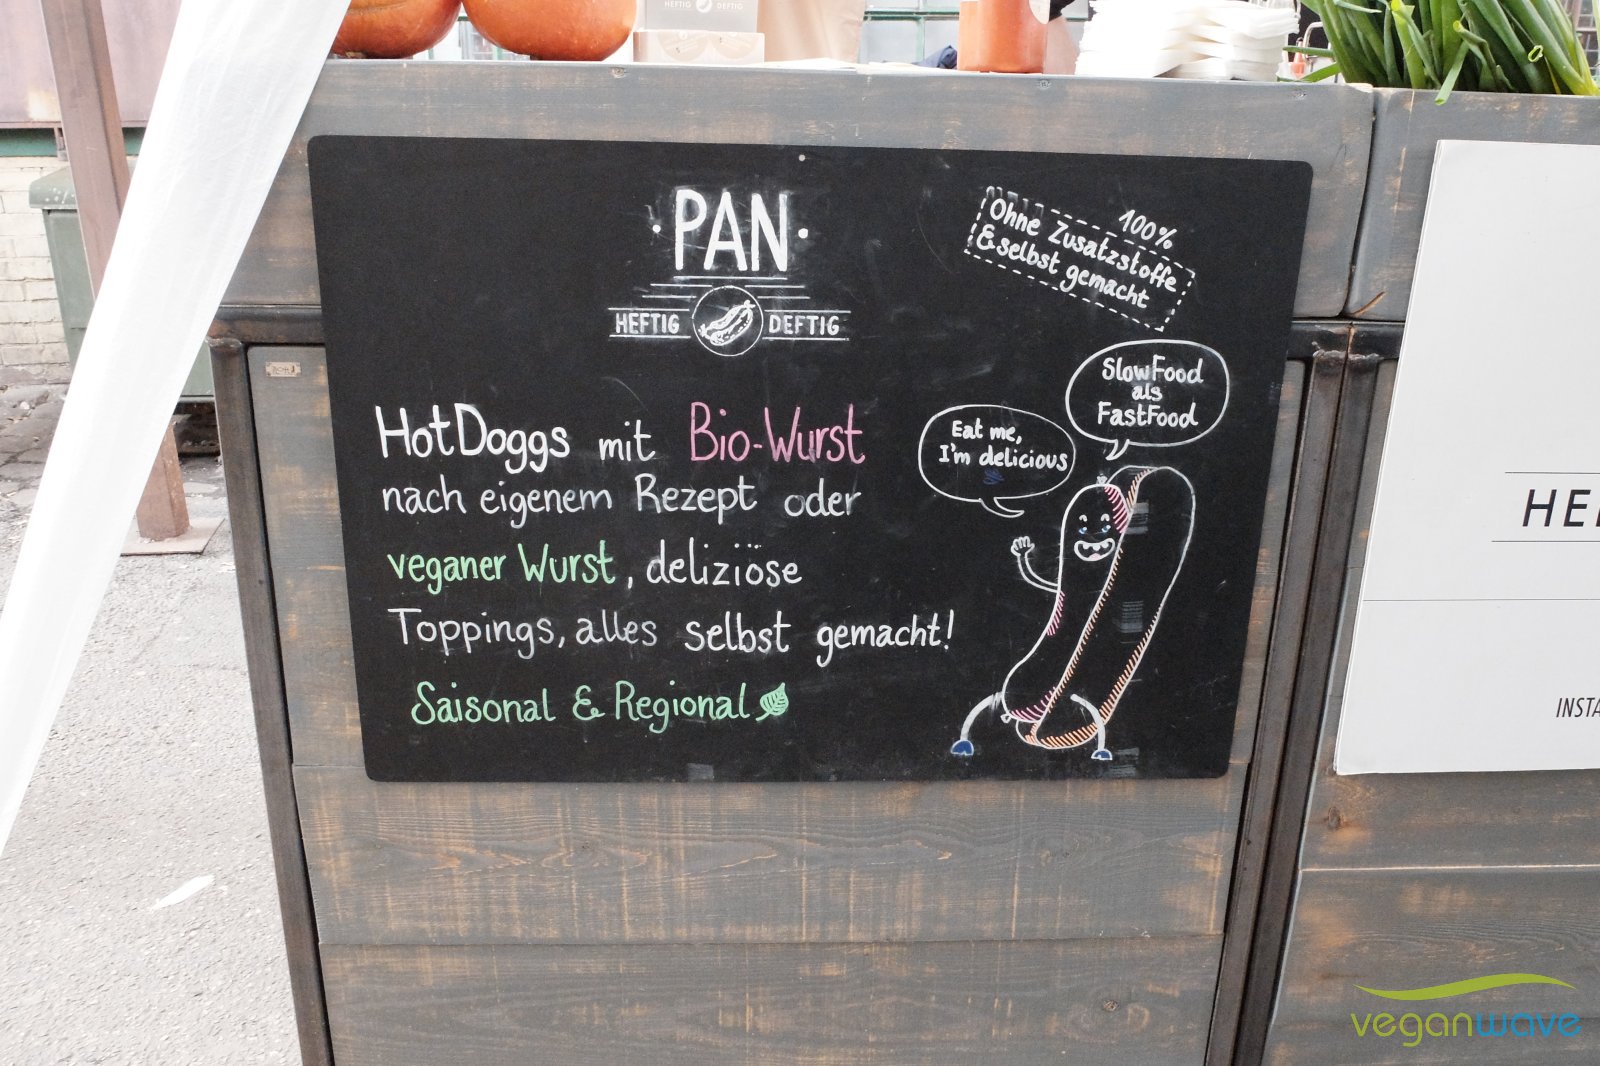 HEFTIG DEFTIG
· PAN ·
HEFTIG DEFTIG
100%
Ohne Zusatzstoffe
& selbst gemacht
SlowFood
als
FastFood
Eat me,
I'm delicious
HotDoggs mit Bio-Wurst
nach eigenem Rezept oder
veganer Wurst, deliziöse
Toppings, alles selbst gemacht!
Saisonal & Regional
veganwave